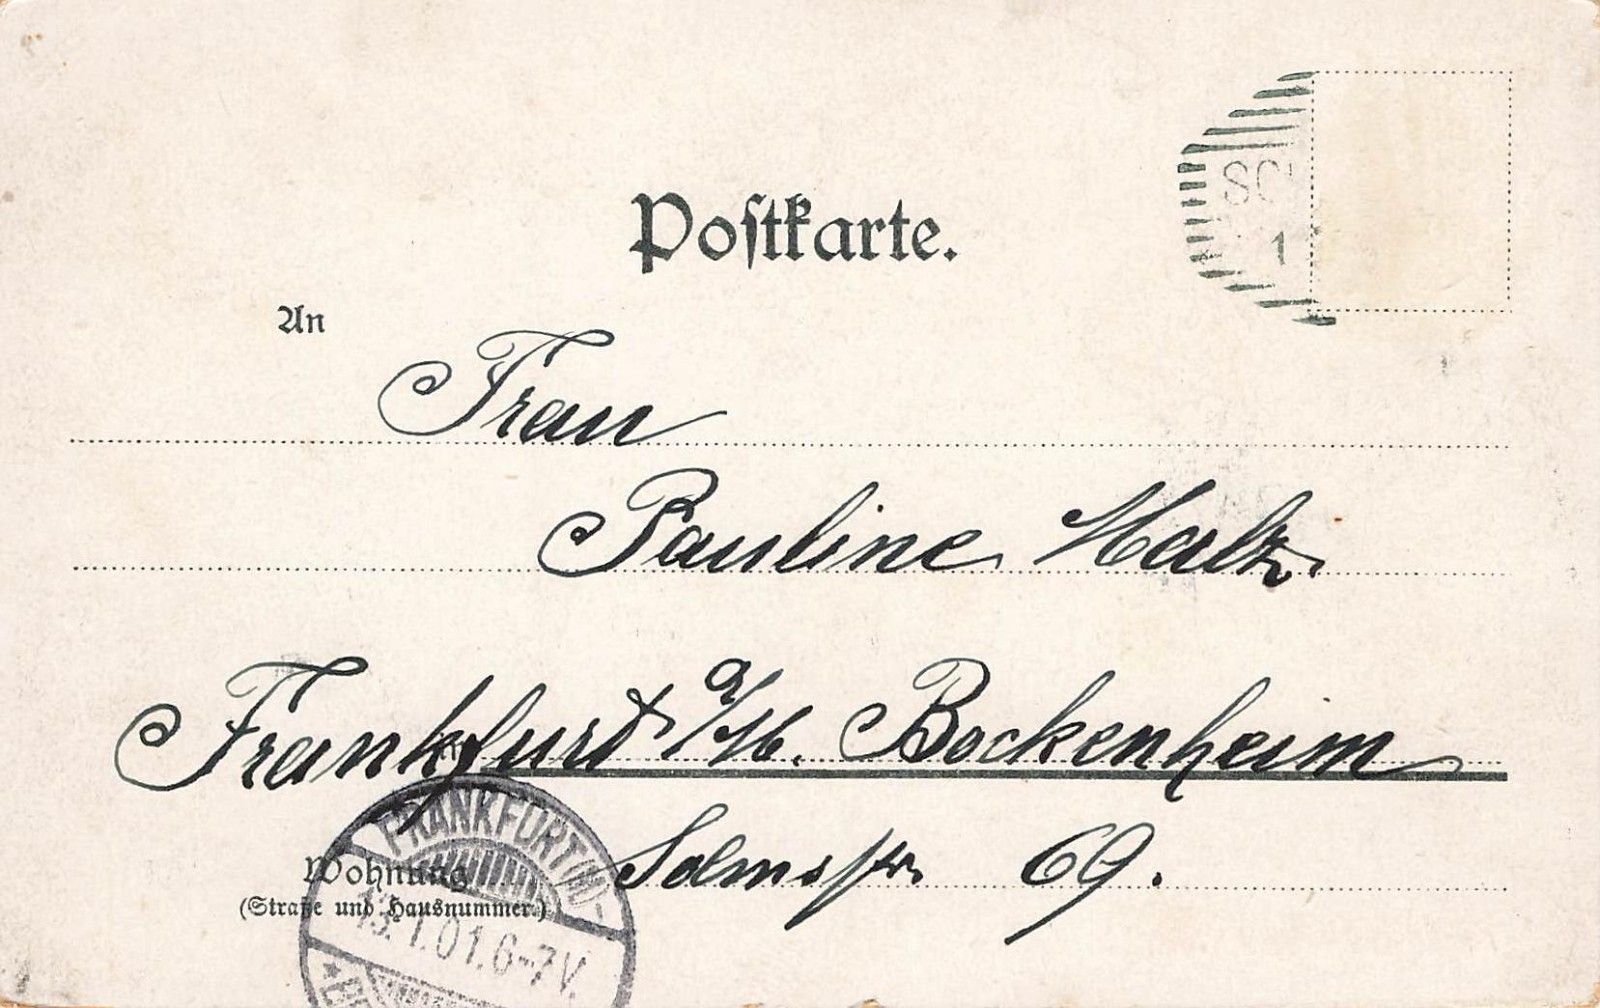 Postkarte.
An
Frau
Pauline Malz
Frankfurt a/M. Bockenheim
Wohnung
(Straße und Hausnummer.)
Solmsstr. 69.
FRANKFURT (M)-
13.1.01.6-7V.